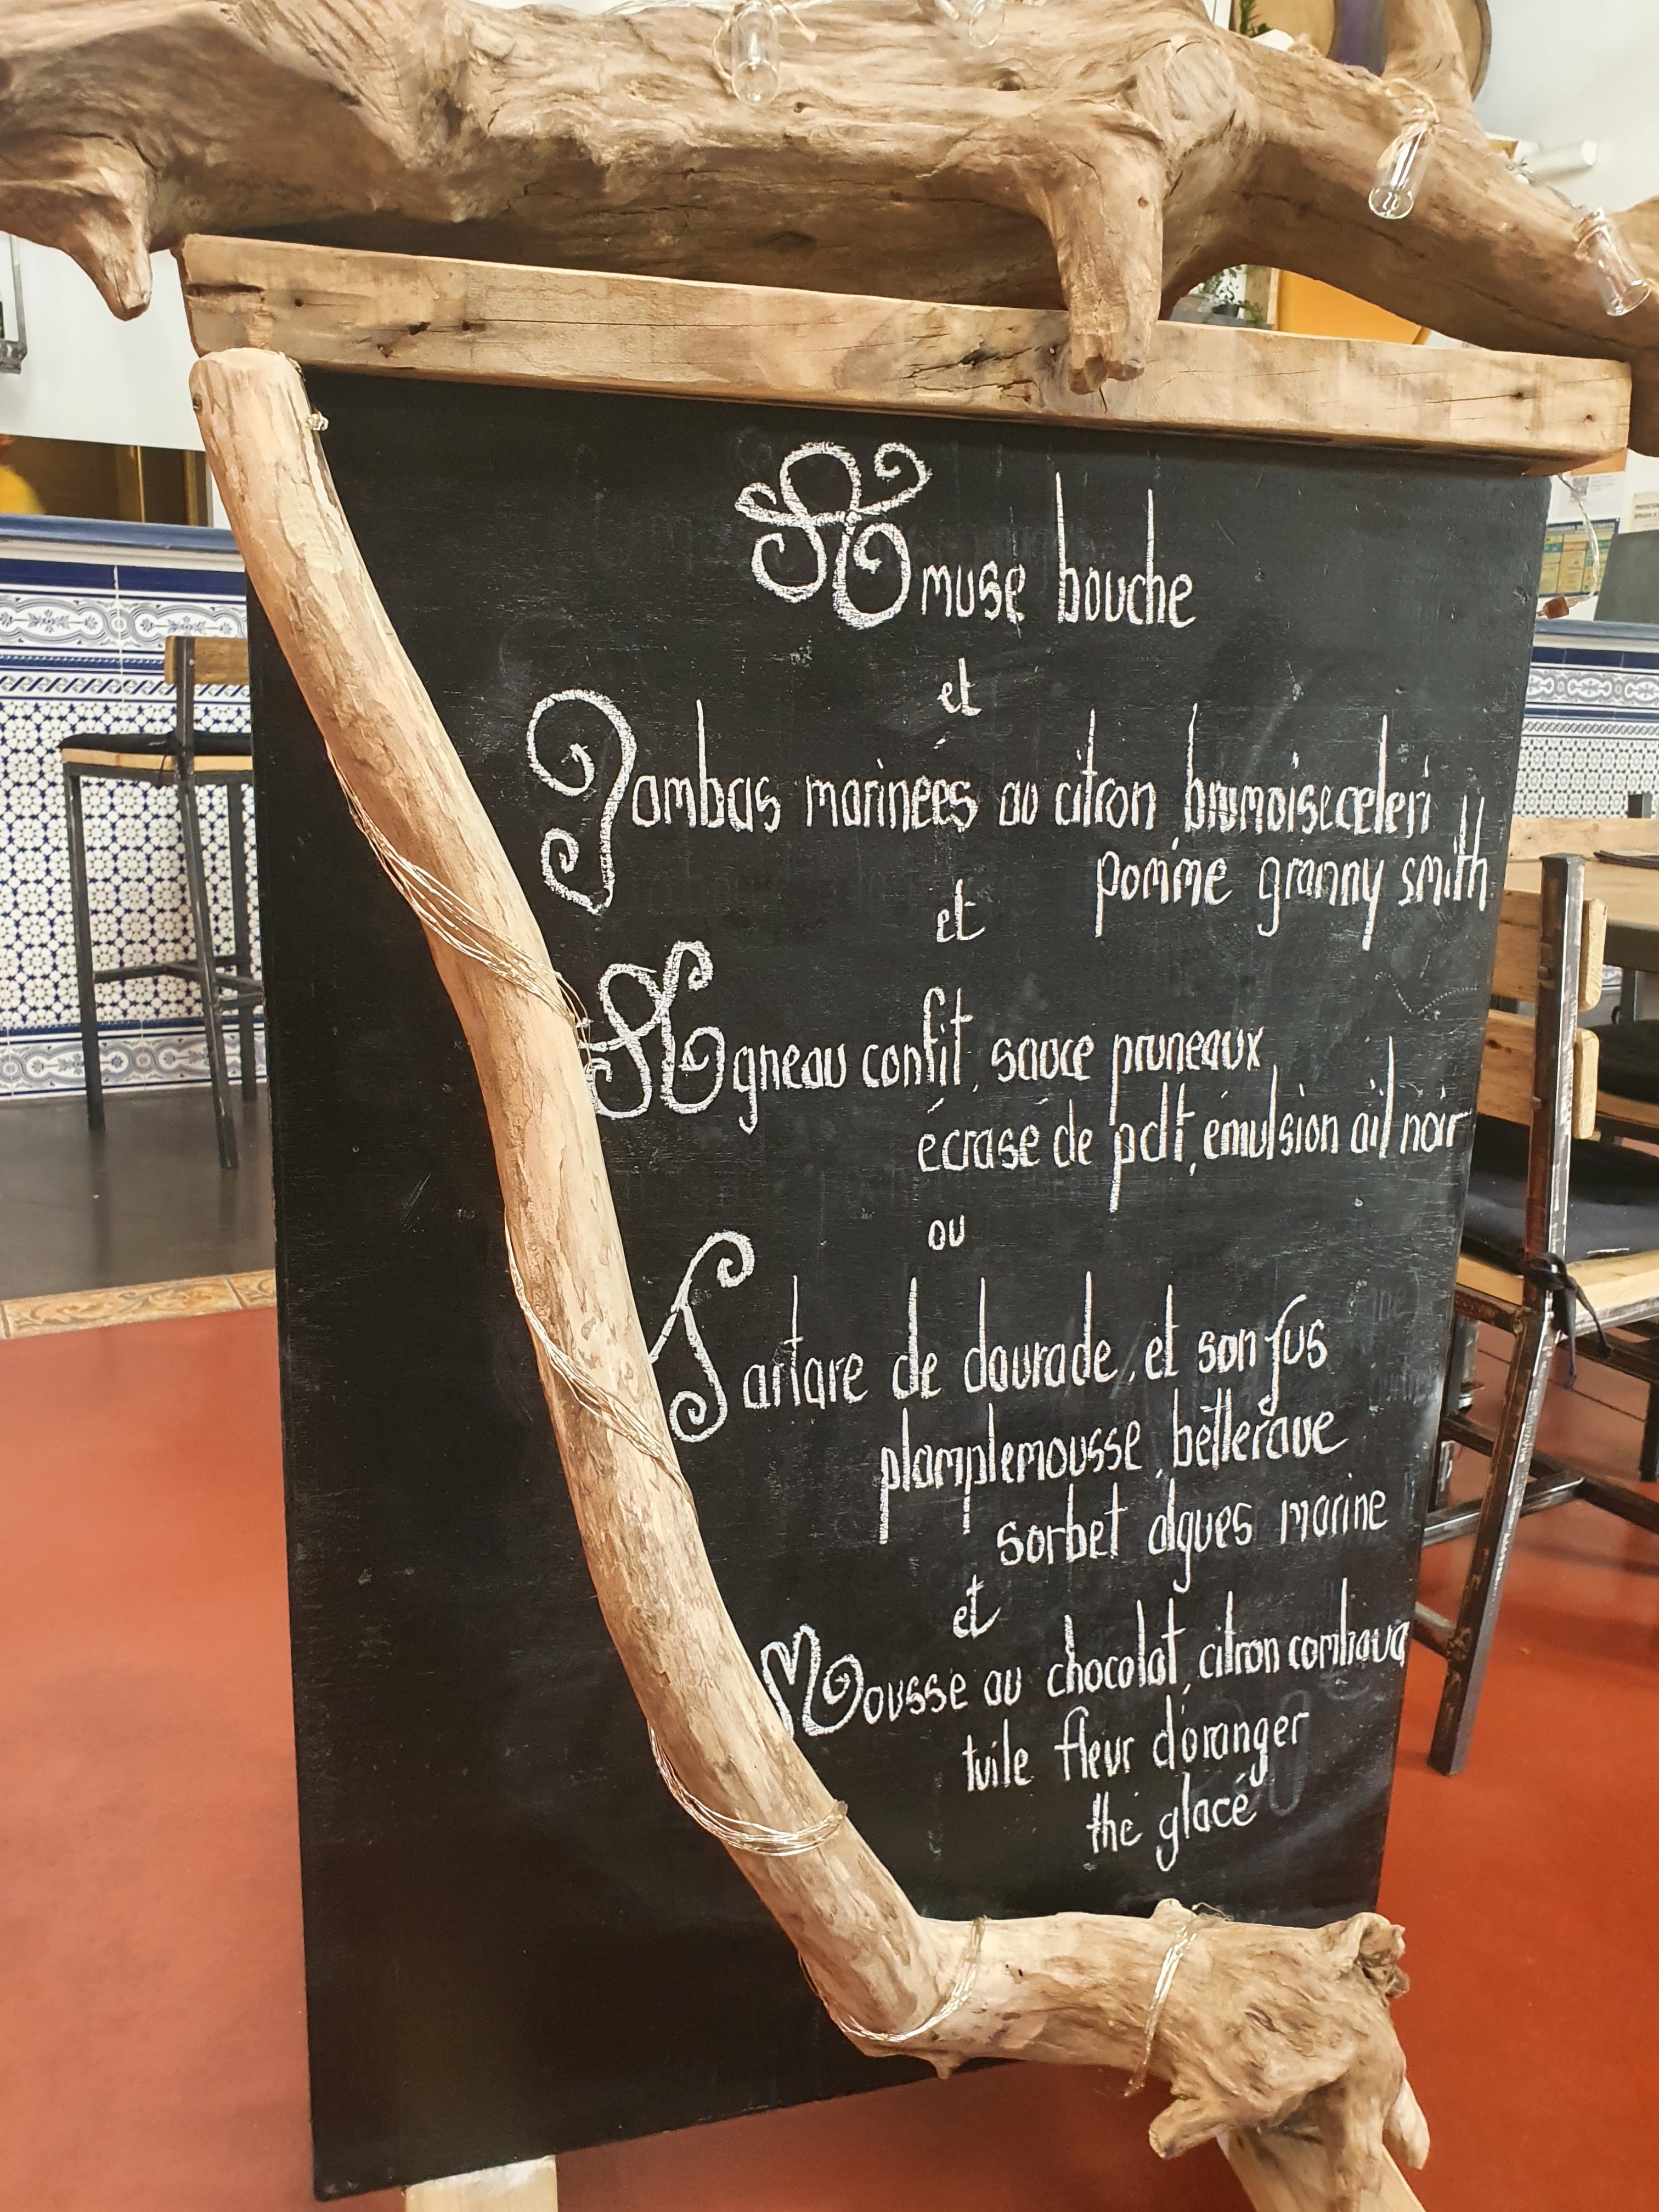 Amuse bouche
et
Gambas marinées au citron brunoise celeri
pomme granny smith
et
Agneau confit, sauce pruneaux
écrasé de pdt, émulsion ail noir
ou
Tartare de daurade, et son jus
plamplemousse, betterave
sorbet algues marine
et
Mousse au chocolat, citron combava
tuile fleur d'oranger
thé glacé